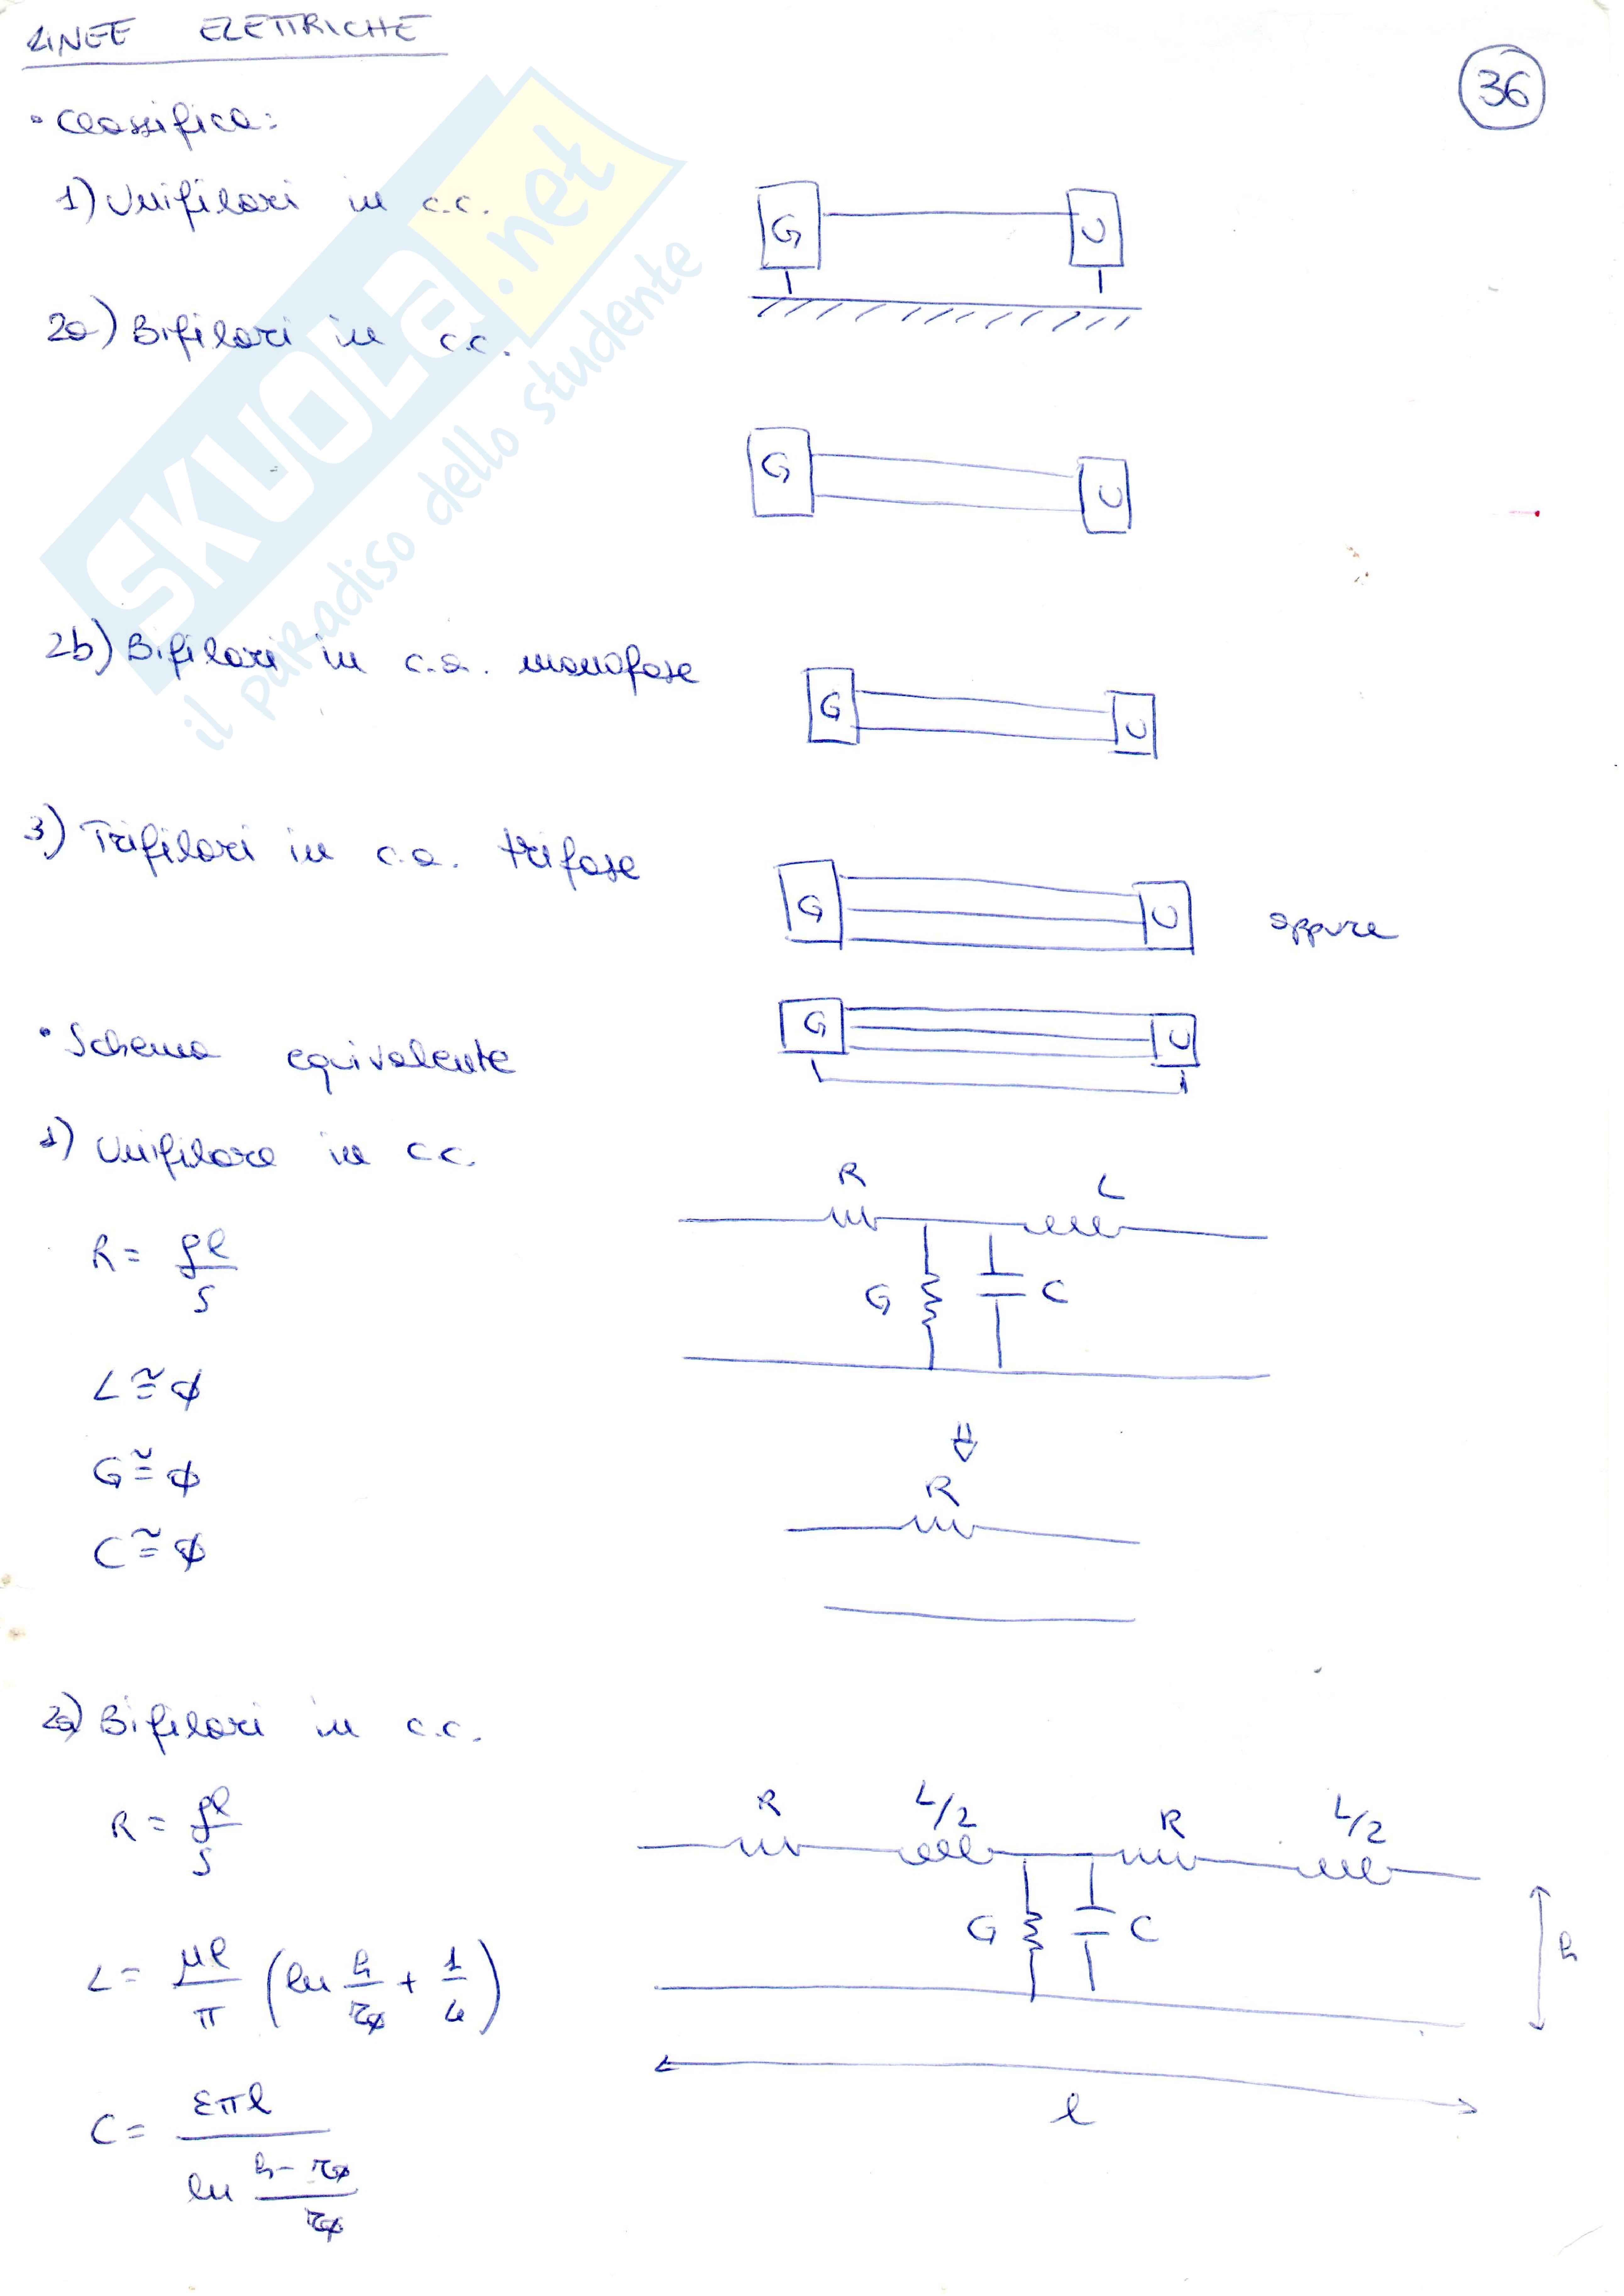 LINEE ELETTRICHE
36
• Classifica:
1) Unifilari in c.c.
G U
2a) Bifilari in c.c.
G U
2b) Bifilari in c.a. monofase
G U
3) Trifilari in c.a. trifase
G U oppure
G U
• Schema equivalente
1) Unifilare in c.c.
R L
R = ρl/S
G C
L ≅ ∅
G ≅ ∅
C ≅ ∅
⇓
R
2a) Bifilari in c.c.
R = ρl/S
R L/2 R L/2
G C h
L = μl/π (ln h/r∅ + 1/4)
l
C = επl / ln (h - r∅)/r∅
SKUOLA.net
il paradiso dello studente